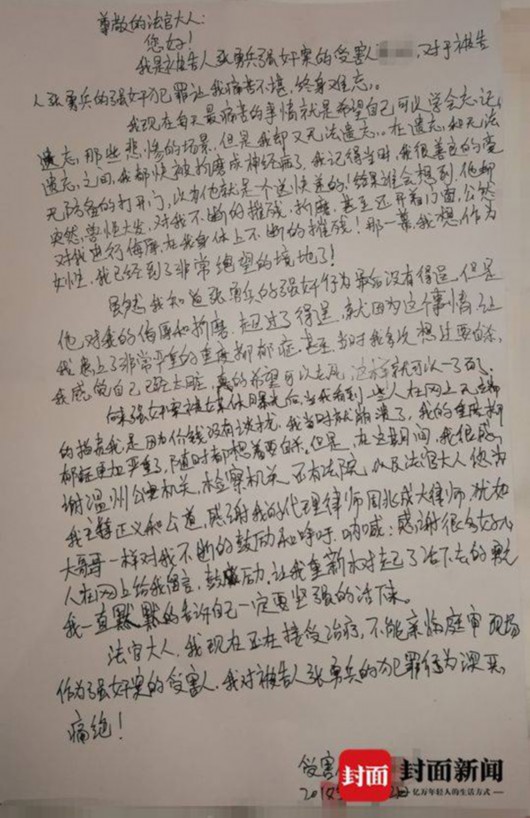 尊敬的法官大人:
您好!
我是被告人张勇兵强奸案的受害人 ,对于被告
人张勇兵的强奸犯罪让我痛苦不堪,终身难忘。
我现在每天最痛苦的事情就是希望自己可以学会忘记,
遗忘,那些悲惨的场景,但是我却又无法遗忘。在遗忘,和无法
遗忘之间,我都快被折磨成神经病了,我记得当时,我很善良的毫
无防备的打开门,以为他就是一个送快差的!结果谁会想到,他却
突然,兽性大发,对我不断的摧残,折磨,甚至还开着门面,公然
对我进行侮辱,在我身体上不断的摧残!那一幕,我想,作为
女性,我已经到了非常绝望的境地了!
虽然,我知道张勇兵的强奸行为最后没有得逞,但是
他对我的侮辱和折磨,超过了得逞,就因为这个事情,让
我患上了非常严重的重度抑郁症,甚至,当时我多次想过要自杀,
我感觉自己已经太脏,真的希望可以去死,这样就可以一了百了。
强奸案被媒体曝光后,当我看到,些人在网上
的指责我是因为价钱没有谈拢,我当时就崩溃了,我的重度抑
郁症更加严重了,随时都想着要自杀。但是,在这期间,我很感
谢温州公安机关,检察机关,还有法院,以及法官大人您为
我主持正义和公道,感谢我的代理律师周兆成大律师,犹如
大哥哥一样对我不断的鼓励和呼吁,呐喊;感谢很多好心
人在网上给我留言,鼓励,让我重新对起了活下去的勇气
我一直默默的告诉自己一定要坚强的活下来。
法官大人,我现在正在接受治疗,不能亲临庭审现场
作为强奸案的受害人,我对被告人张勇兵的犯罪行为深恶
痛绝!
受害
封面 封面新闻
亿万年轻人的生活方式